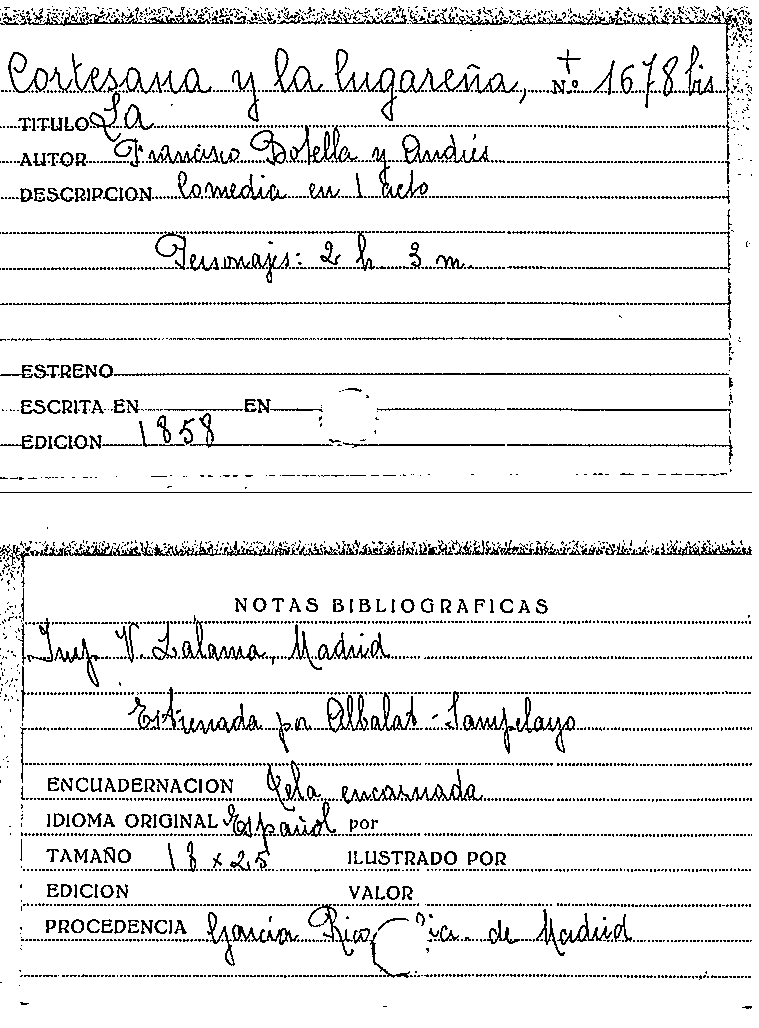 Cortesana y la lugareña, Nº 1678 bis
TITULO La
AUTOR Francisco Botella y Andrés
DESCRIPCION Comedia en 1 acto
Personajes: 2 h 3 m.
ESTRENO
ESCRITA EN EN
EDICION 1858
NOTAS BIBLIOGRAFICAS
Imp. V. Lalama, Madrid
Estrenada por Albalat-Sampelayo
ENCUADERNACION Tela encarnada
IDIOMA ORIGINAL Español por
TAMAÑO 18 x 25 ILUSTRADO POR
EDICION VALOR
PROCEDENCIA García Rico de Madrid